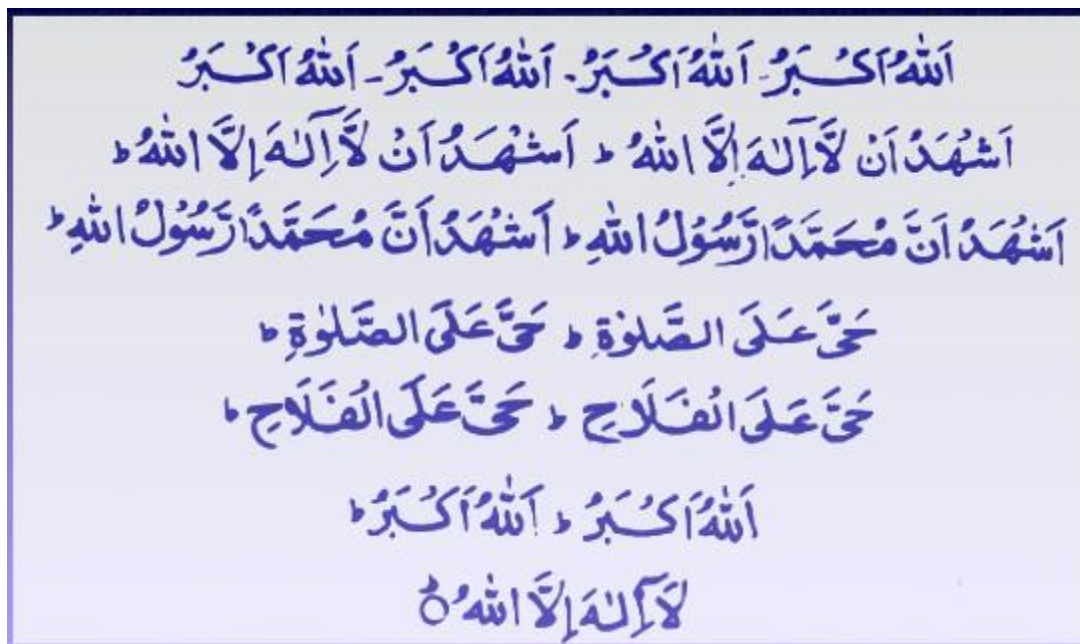 اَللّٰهُ اَكْبَرُ۔ اَللّٰهُ اَكْبَرُ۔ اَللّٰهُ اَكْبَرُ۔ اَللّٰهُ اَكْبَرُ
اَشْهَدُ اَنْ لَّآ اِلٰهَ اِلَّا اللّٰهُ ؕ اَشْهَدُ اَنْ لَّآ اِلٰهَ اِلَّا اللّٰهُ ؕ
اَشْهَدُ اَنَّ مُحَمَّدًا رَّسُوْلُ اللّٰهِ ؕ اَشْهَدُ اَنَّ مُحَمَّدًا رَّسُوْلُ اللّٰهِ ؕ
حَیَّ عَلَی الصَّلوٰةِ ؕ حَیَّ عَلَی الصَّلوٰةِ ؕ
حَیَّ عَلَی الْفَلَاحِ ؕ حَیَّ عَلَی الْفَلَاحِ ؕ
اَللّٰهُ اَكْبَرُ ؕ اَللّٰهُ اَكْبَرُ ؕ
لَآ اِلٰهَ اِلَّا اللّٰهُ ؕ○